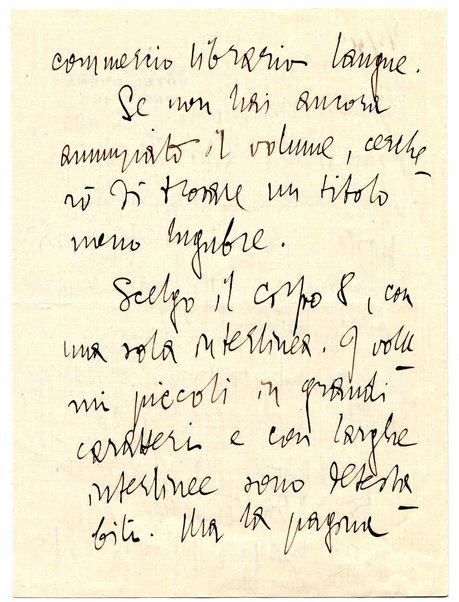 commercio librario langue.
Se non hai ancora
annunziato il volume, cerche-
rò di trovare un titolo
meno lugubre.
Scelgo il corpo 8, con
una sola interlinea. I volu-
mi piccoli in grandi
caratteri e con larghe
interlinee sono detesta-
bili. Ma la pagina